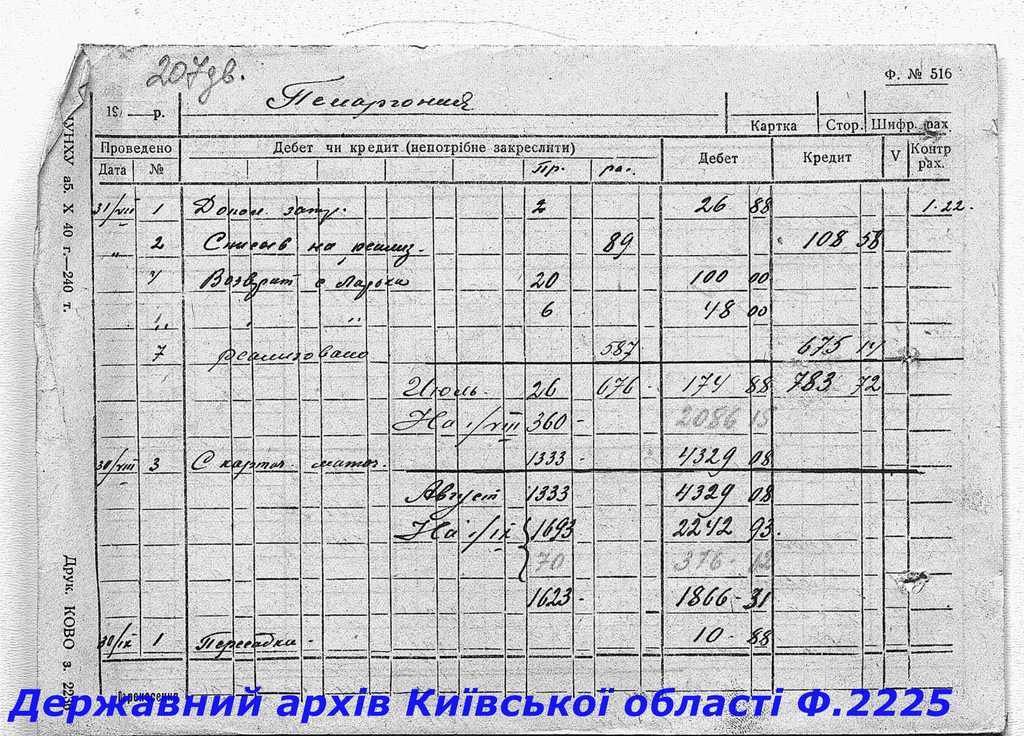 207 дв.
Ф. № 516
Пеларгония
19 р.
Картка Стор. Шифр. рах.
Проведено Дебет чи кредит (непотрібне закреслити) Дебет Кредит V Контр рах.
Дата № Пр. рас.
31/VII 1 Допол. затр. 2 26 88 1.22.
" 2 Списыв на реализ. 89 108 58
7 Возврат с ларька 20 100 00
" " " 6 48 00
7 реализовано 587 675 14
Июль. 26 676 - 174 88 783 72
На 1/VIII 360 - 2086 15
30/VIII 3 С карточ. маточ. 1333 - 4329 08
Август 1333 - 4329 08
На 1/IX 1693 2242 93.
70 376 - 12
1623 - 1866 - 31
30/IX 1 Пересадка - 10 - 88
Перенесення
УНХУ аб. X 40 г.—240 т.
Друк. КОВО з. 22
Державний архів Київської області Ф.2225